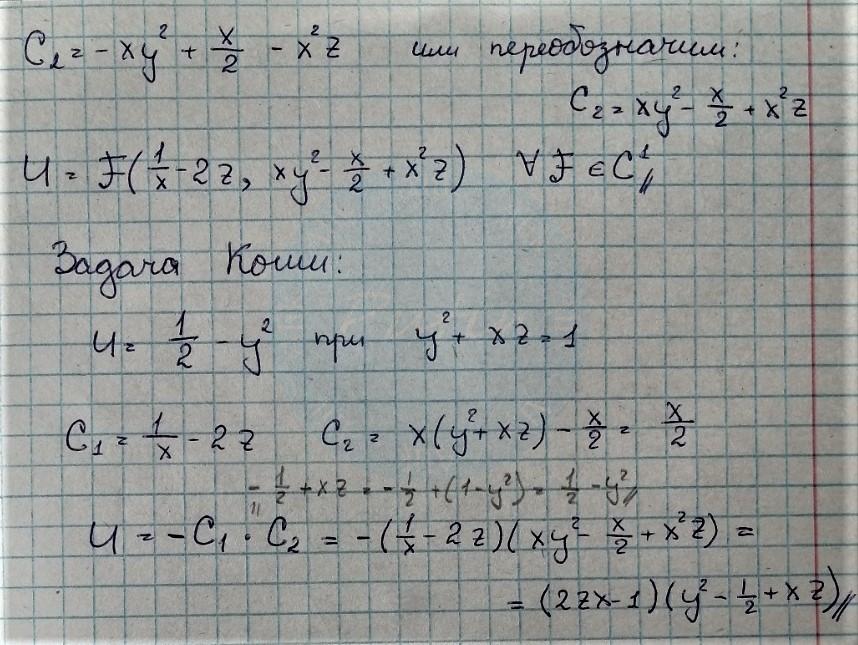 C₂ = - xy² + x/2 - x²z или переобозначим:
C₂ = xy² - x/2 + x²z
U = F(1/x - 2z, xy² - x/2 + x²z) ∀ F ∈ C¹//
Задача Коши:
U = 1/2 - y² при y² + xz = 1
C₁ = 1/x - 2z C₂ = x(y² + xz) - x/2 = x/2
- 1/2 + xz = - 1/2 + (1 - y²) = 1/2 - y²//
U = - C₁ · C₂ = - (1/x - 2z)(xy² - x/2 + x²z) =
= (2zx - 1)(y² - 1/2 + xz)//